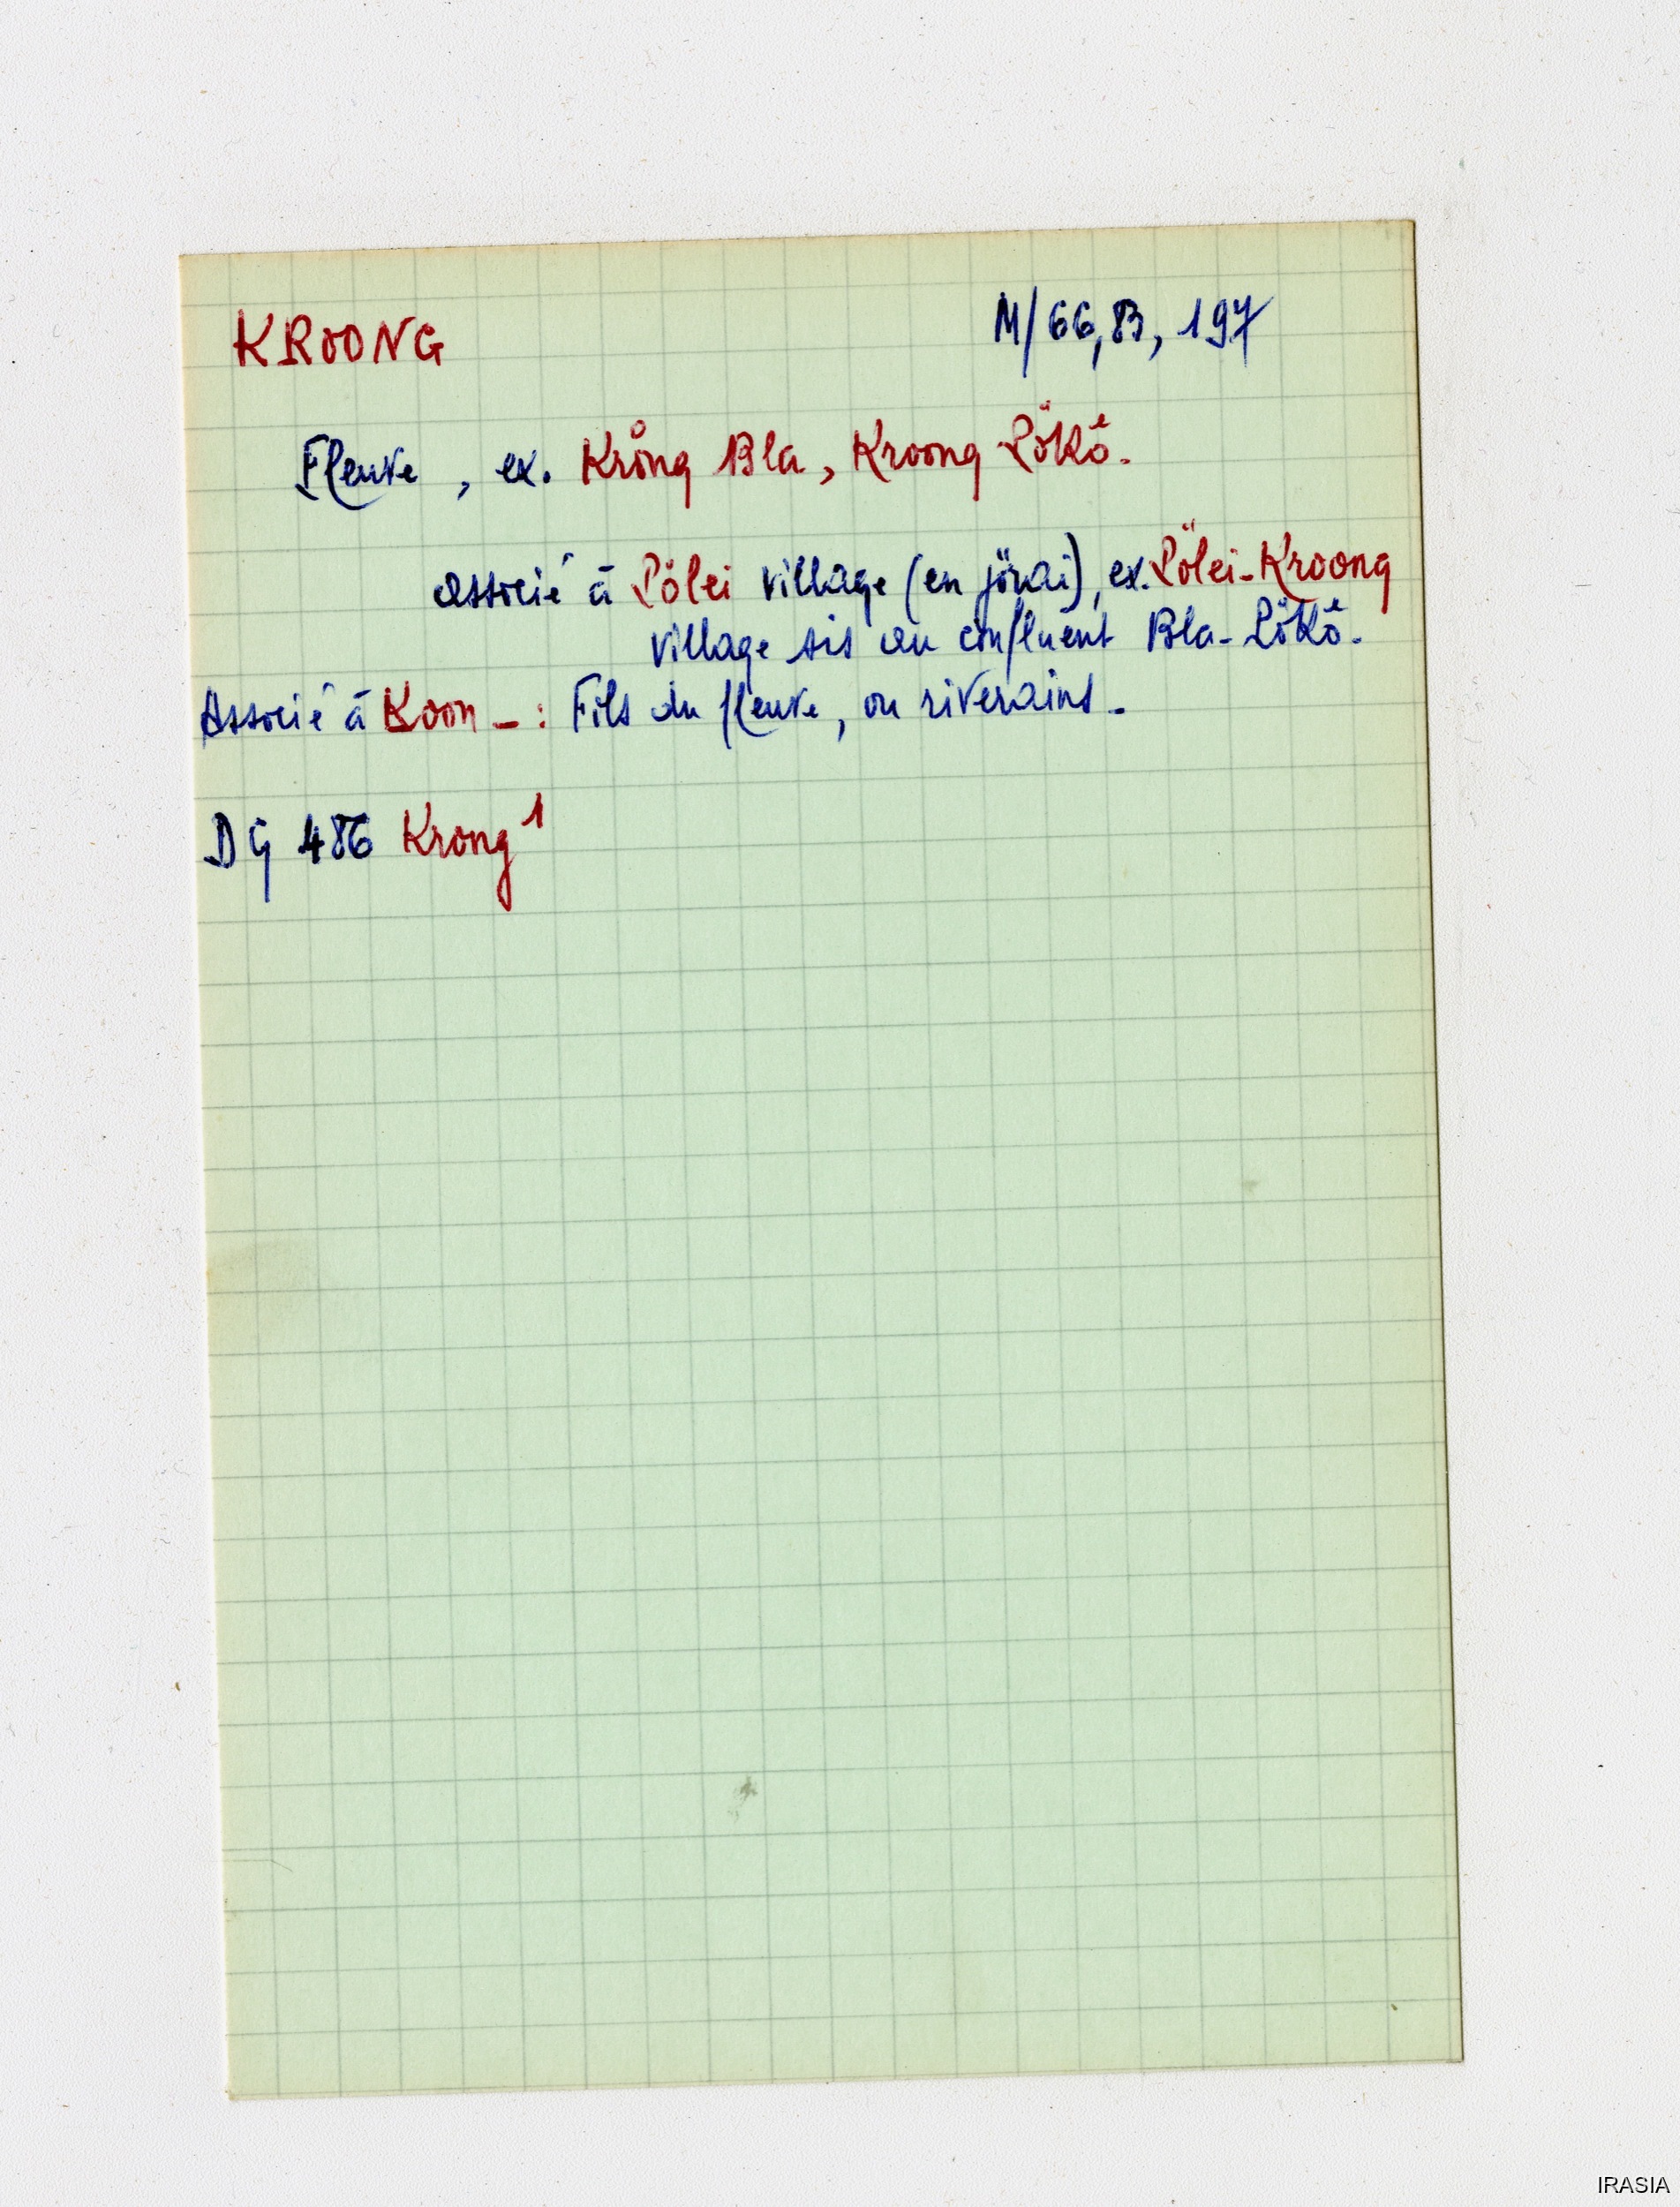 KROONG M/66,83, 197
Fleuve, ex. Krông Bla, Kroong Pökô.
associé à Pölei village (en jörai), ex. Pölei-Kroong
village sis au confluent Bla-Pökô.
Associé à Koon - : Fils du fleuve, ou riverains -
DG 486 Krong 1
IRASIA